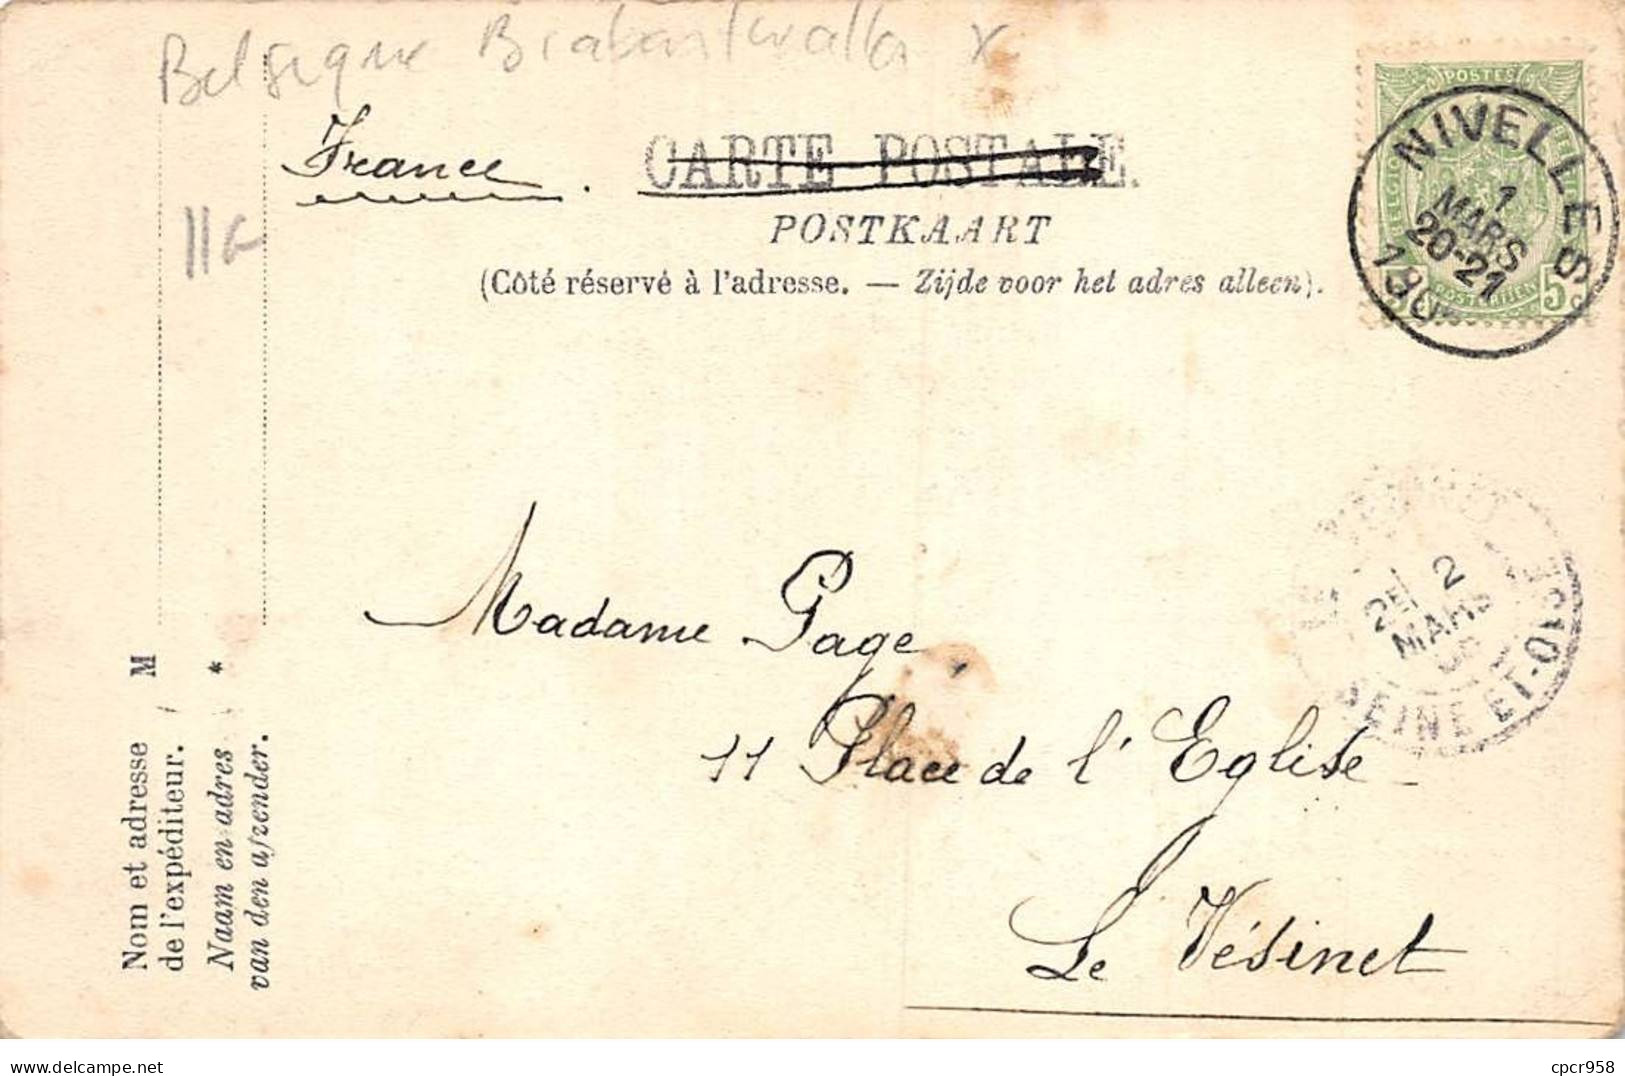 Belgique Brabant wallon x
France.
CARTE POSTALE.
POSTKAART
(Côté réservé à l'adresse. — Zijde voor het adres alleen).
POSTES
5 c
NIVELLES
1
MARS
20-21
11G
Madame Page,
11 Place de l'Eglise
Le Vésinet
2
MARS
SEINE ET-OISE
M
*
Nom et adresse
de l'expéditeur.
Naam en adres
van den afzender.
https://www.delcampe.net
cpcr958